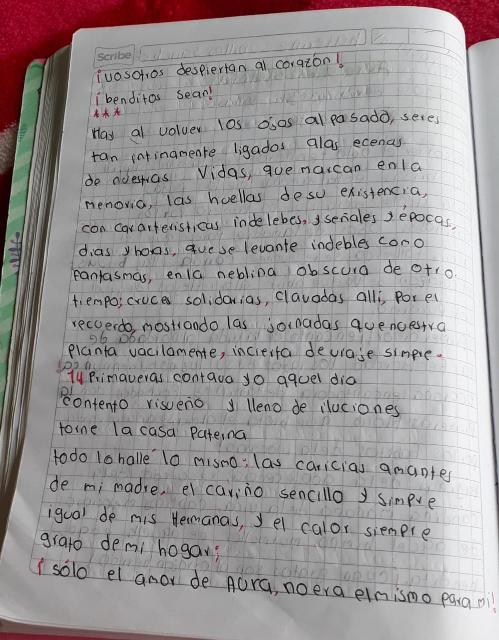 Scribe
¡vosotros despiertan al corazón!
¡benditos sean!
***
Mas al volver los ojos al pasado, seres
tan intinamente ligados alas ecenas
de nuestras Vidas, que marcan en la
memoria, las huellas desu existencia,
con carácteristicas indelebes, y señales y épocas,
dias y horas, que se levante indebles como
Fantasmas, en la neblina obscura de otro
tiempo; cruces solidarias, clavadas alli, por el
recuerdo, mostrando las jornadas que nuestra
planta vacilamente, incierta de viaje simpre.
14 Primaveras contava yo aquel dia
contento risueño y lleno de iluciones
torne la casa paterna
todo lo halle lo mismo: las caricias amantes
de mi madre, el cariño sencillo y simpre
igual de mis Hermanas, y el calor siempre
grato demi hogar;
¡sólo el amor de Aura, no era el mismo para mi!